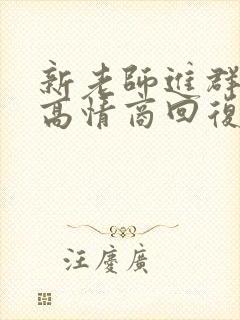 新老師進群
高情商回復
汪慶廣